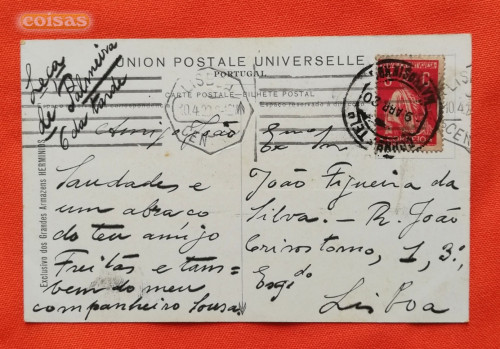 coisas
Leça
de Palmeira
6 da tarde
UNION POSTALE UNIVERSELLE
PORTUGAL
CARTE POSTALE - BILHETE POSTAL
Exclusivo dos Grandes Armazens HERMINIOS
Amigo João
Saudades e
um abraço
do teu amigo
Freitas e tam=
bem do meu
companheiro Sousa.
Exmo
Snr
João Figueira da
Silva. — R. João
Crisostomo, 1, 3º,
Esqdo
Lisboa